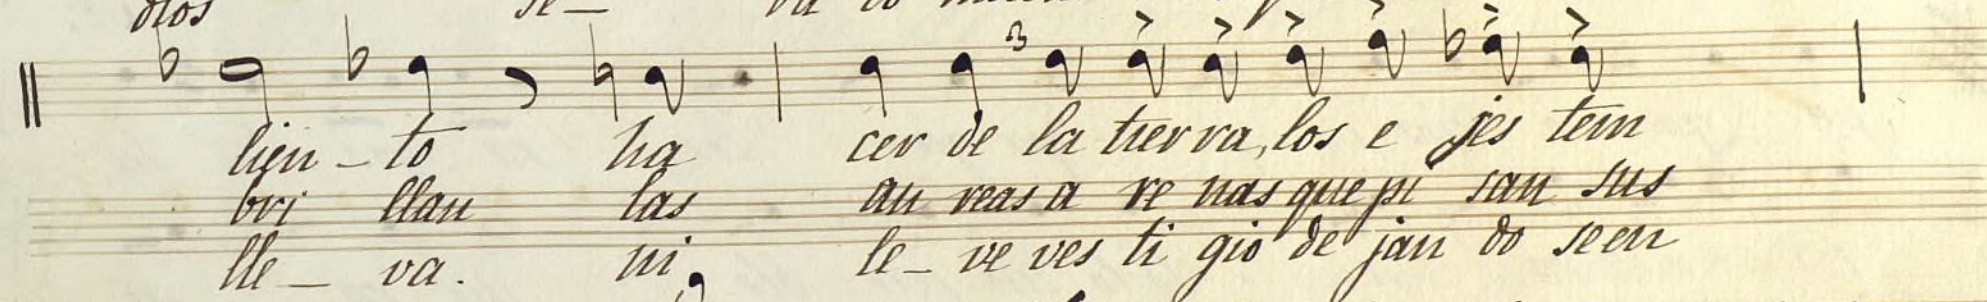 dios se_
3
lien_to ha cer de la tierra, los e jes tem
bri llan las au reas a re nas que pi san sus
lle_va. ni le_ve ves ti gio de jan do se en